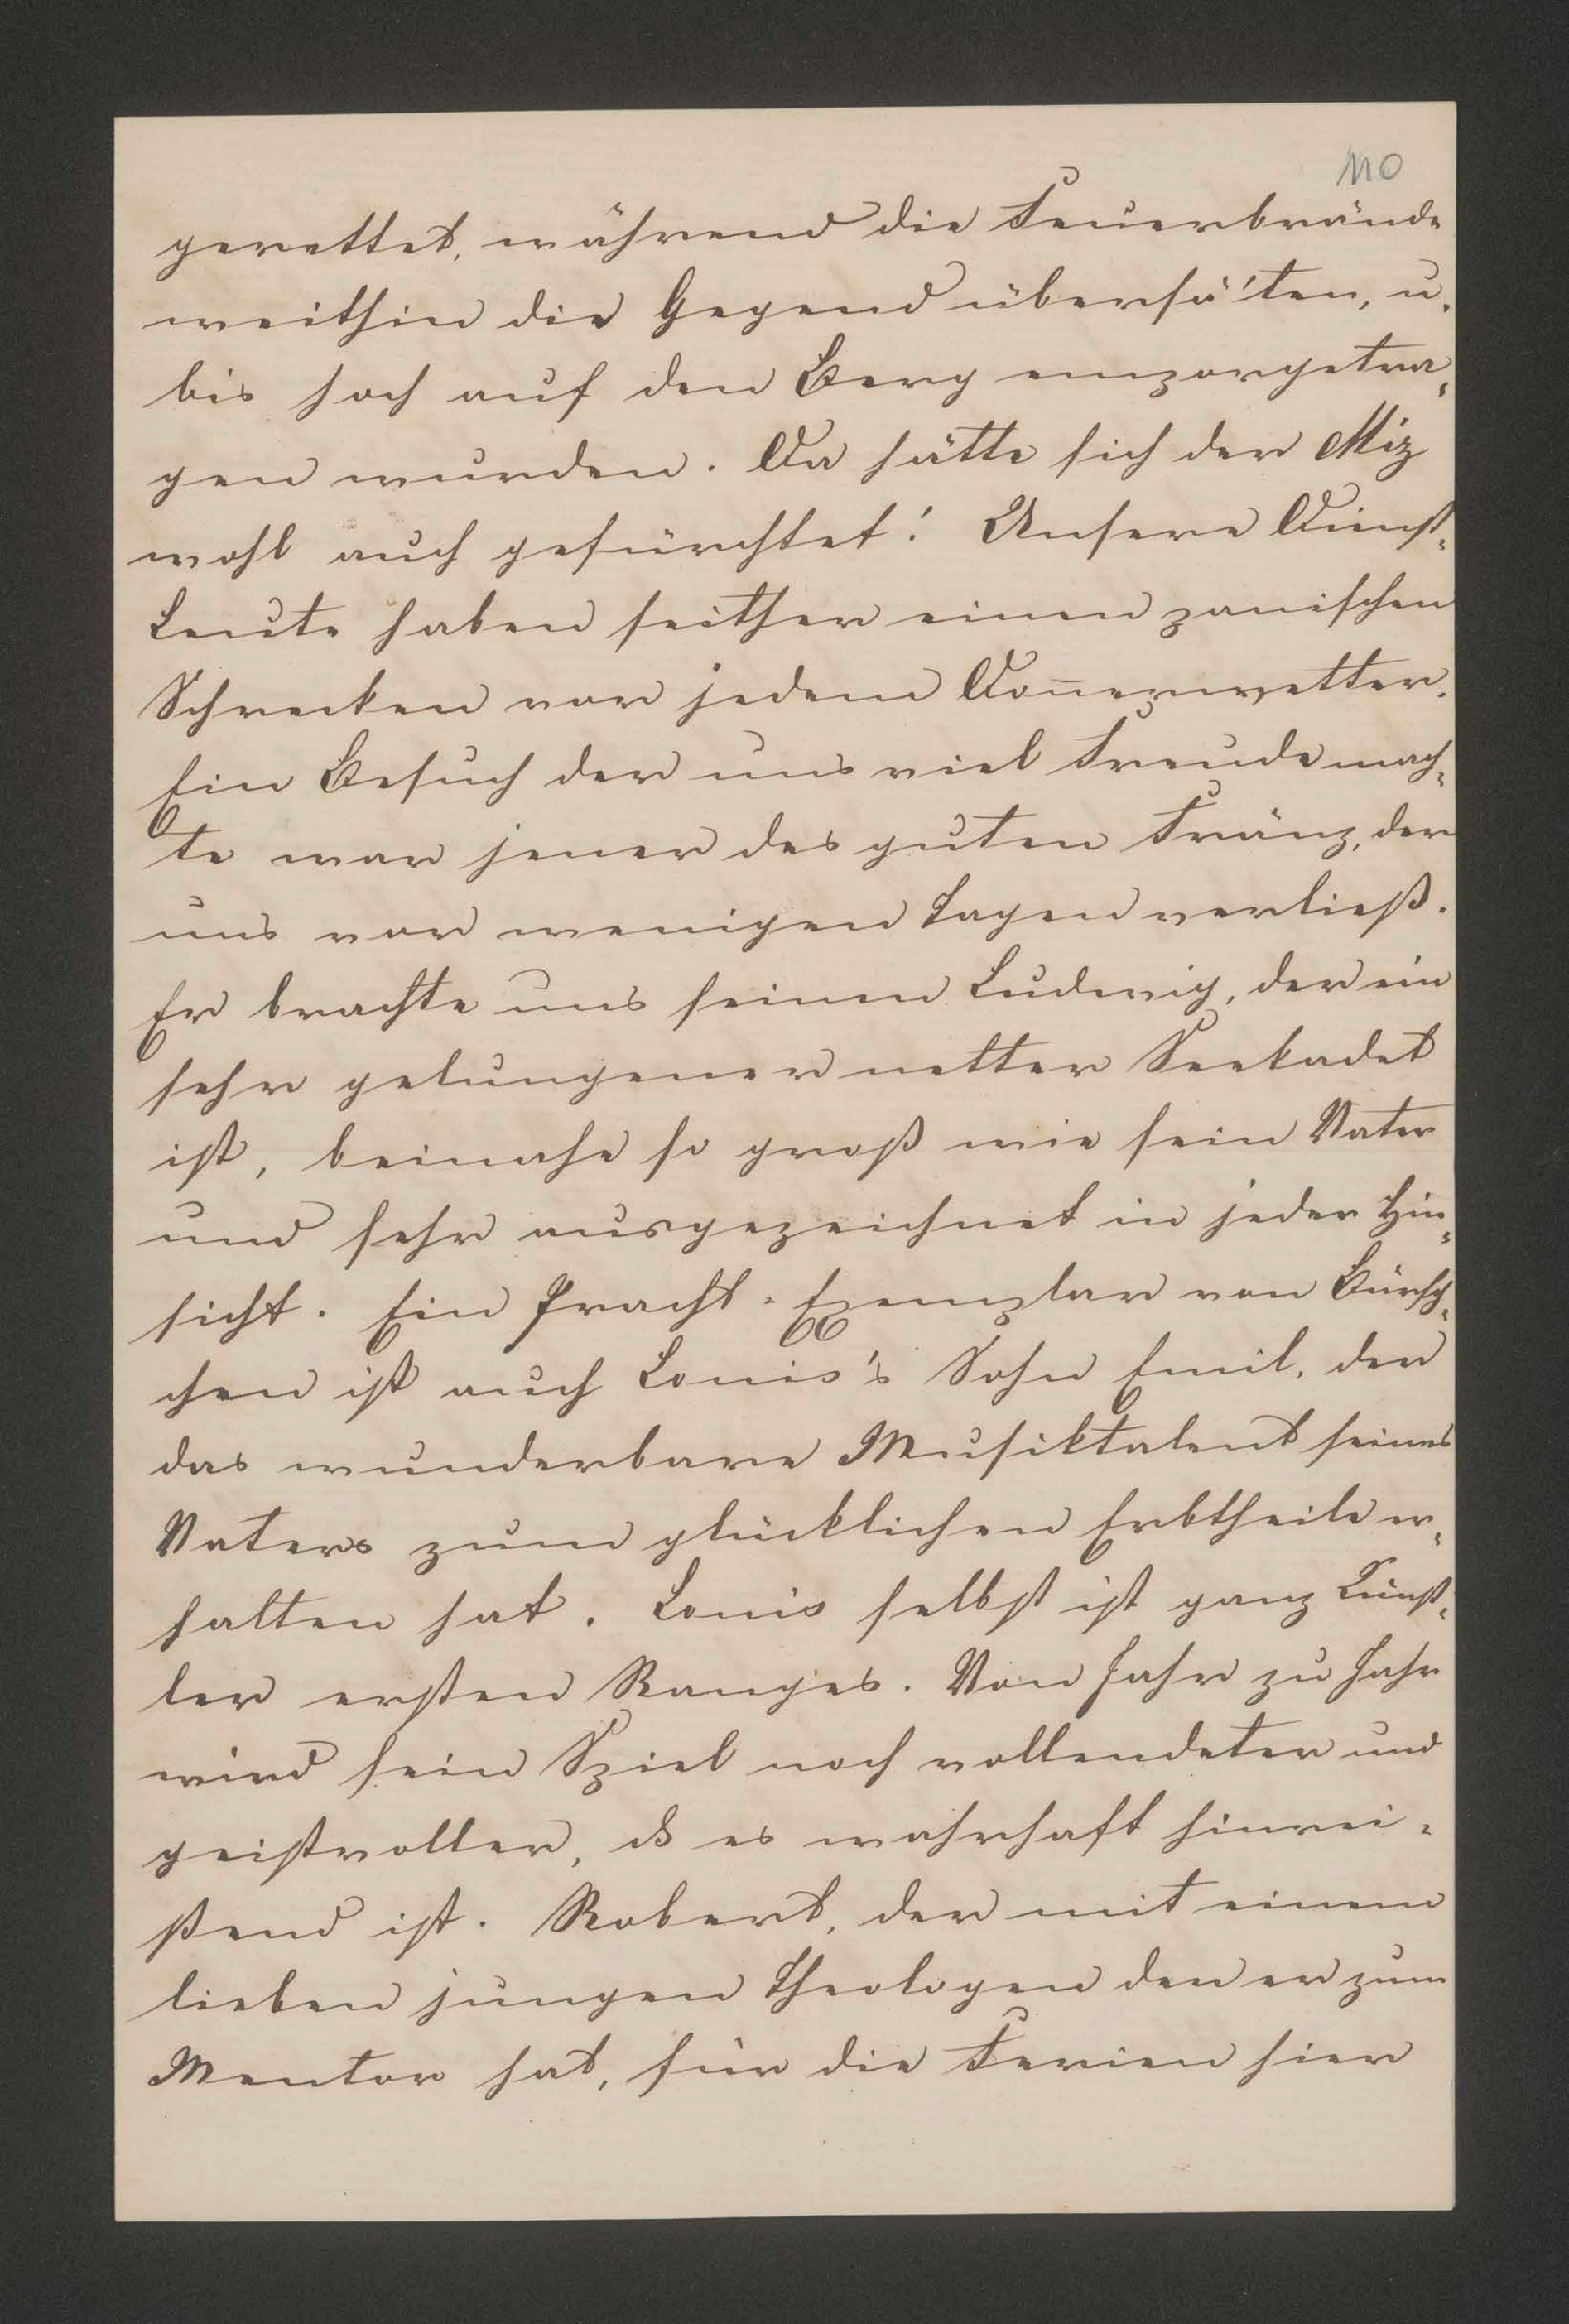 110
gerettet, während die Feuerbrände
weithin die Gegend übersä'ten, u.
bis hoch auf den Berg emporgetra-
gen wurden. Da hätte sich der Miz
wohl auch gefürchtet! Unsere Dienst-
Leute haben seither einen panischen
Schrecken vor jedem Don̅erwetter.
Ein Besuch der uns viel Freude mach-
te war jener des guten Fränz, der
uns vor wenigen Tagen verließ.
Er brachte uns seinen Ludwig, der ein
sehr gelungener netter Seekadet
ist, beinahe so groß wie sein Vater
und sehr ausgezeichnet in jeder Hin-
sicht. Ein Pracht-Exemplar von Bürsch-
chen ist auch Louis's Sohn Emil, der
das wunderbare Musiktalent seines
Vaters zum glücklichen Erbtheile er-
halten hat. Louis selbst ist ganz Künst-
ler ersten Ranges. Von Jahr zu Jahr
wird sein Spiel noch vollendeter und
geistvoller, ds es wahrhaft hinrei-
ßend ist. Robert, der mit einem
lieben jungen Theologen den er zum
Mentor hat, für die Ferien hier